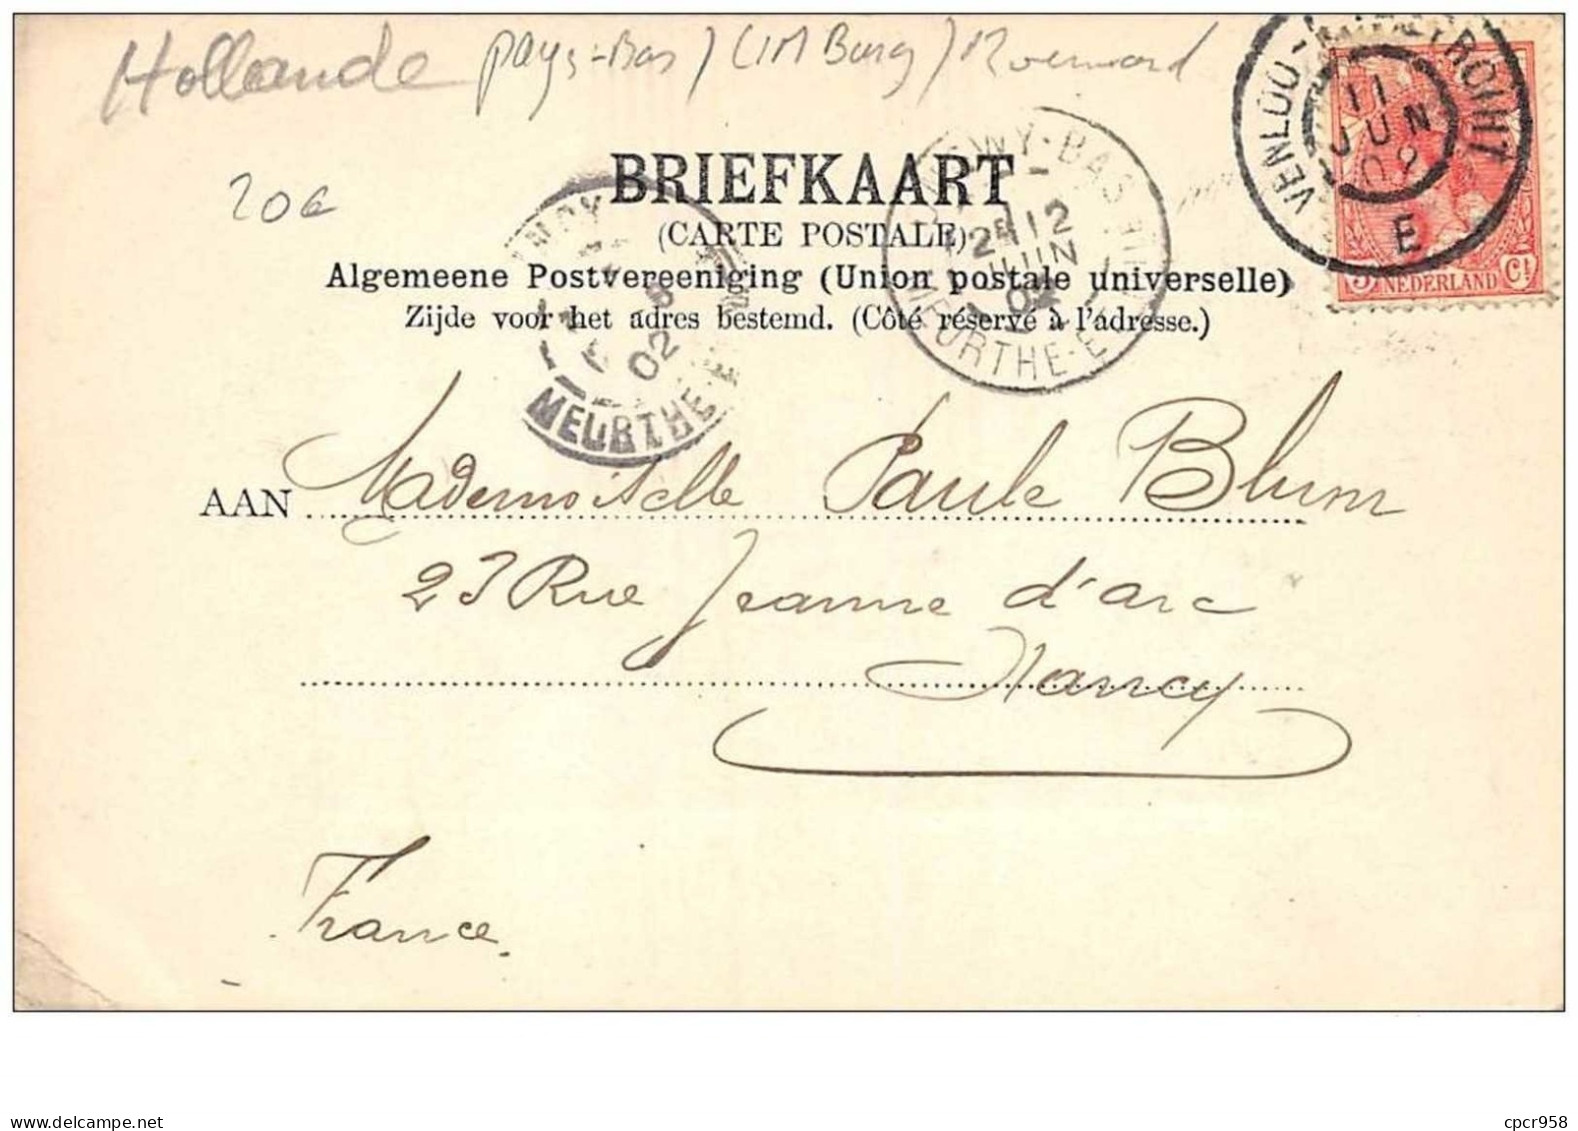 Hollande Pays-Bas / LIMBurg /
20€
VENLOO-
11
JUN
02
E
5 NEDERLAND Ct
BRIEFKAART
(CARTE POSTALE)
Algemeene Postvereeniging (Union postale universelle)
Zijde voor het adres bestemd. (Côté réservé à l'adresse.)
WY-BAS
12
JUIN
MEURTHE-E
02
MEURTHE-E
AAN Mademoiselle Paule Blum
23 Rue Jeanne d'arc
Nancy
France.
delcampe.net
cpcr958